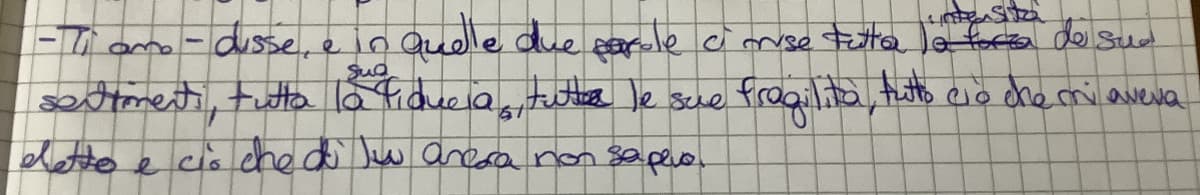 -Ti amo- disse, e in quelle due parole ci mise tutta l'intensità dei suoi
sentimenti, tutta la sua fiducia, tutte le sue fragilità, tutto ciò che mi aveva
detto e ciò che di lui ancora non sapevo.